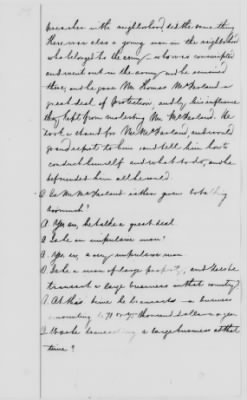 preacher in the neighborhood, did the same thing
There was also a young man in the neighborhood
who belonged to the army - who was conscripted
and went out in the army and he remained
there, and he gave Mr Thomas McFarland a
great deal of protection, and by his influence
they kept from molesting Mr McFarland. He
took a chance for Mr McFarland, and would
go and report to him and tell him how to
conduct himself and what to do, and he
befriended him all he could.
Q Is Mr McFarland rather given to talking
too much?
A Yes sir, he talks a great deal
Q Is he an impulsive man?
A Yes sir, a very impulsive man.
Q Is he a man of large property, and does he
transact a large business in that country?
A At this time he transacts a business
amounting to or thousand dollars a year
Q Was he transacting a large business at that
time?